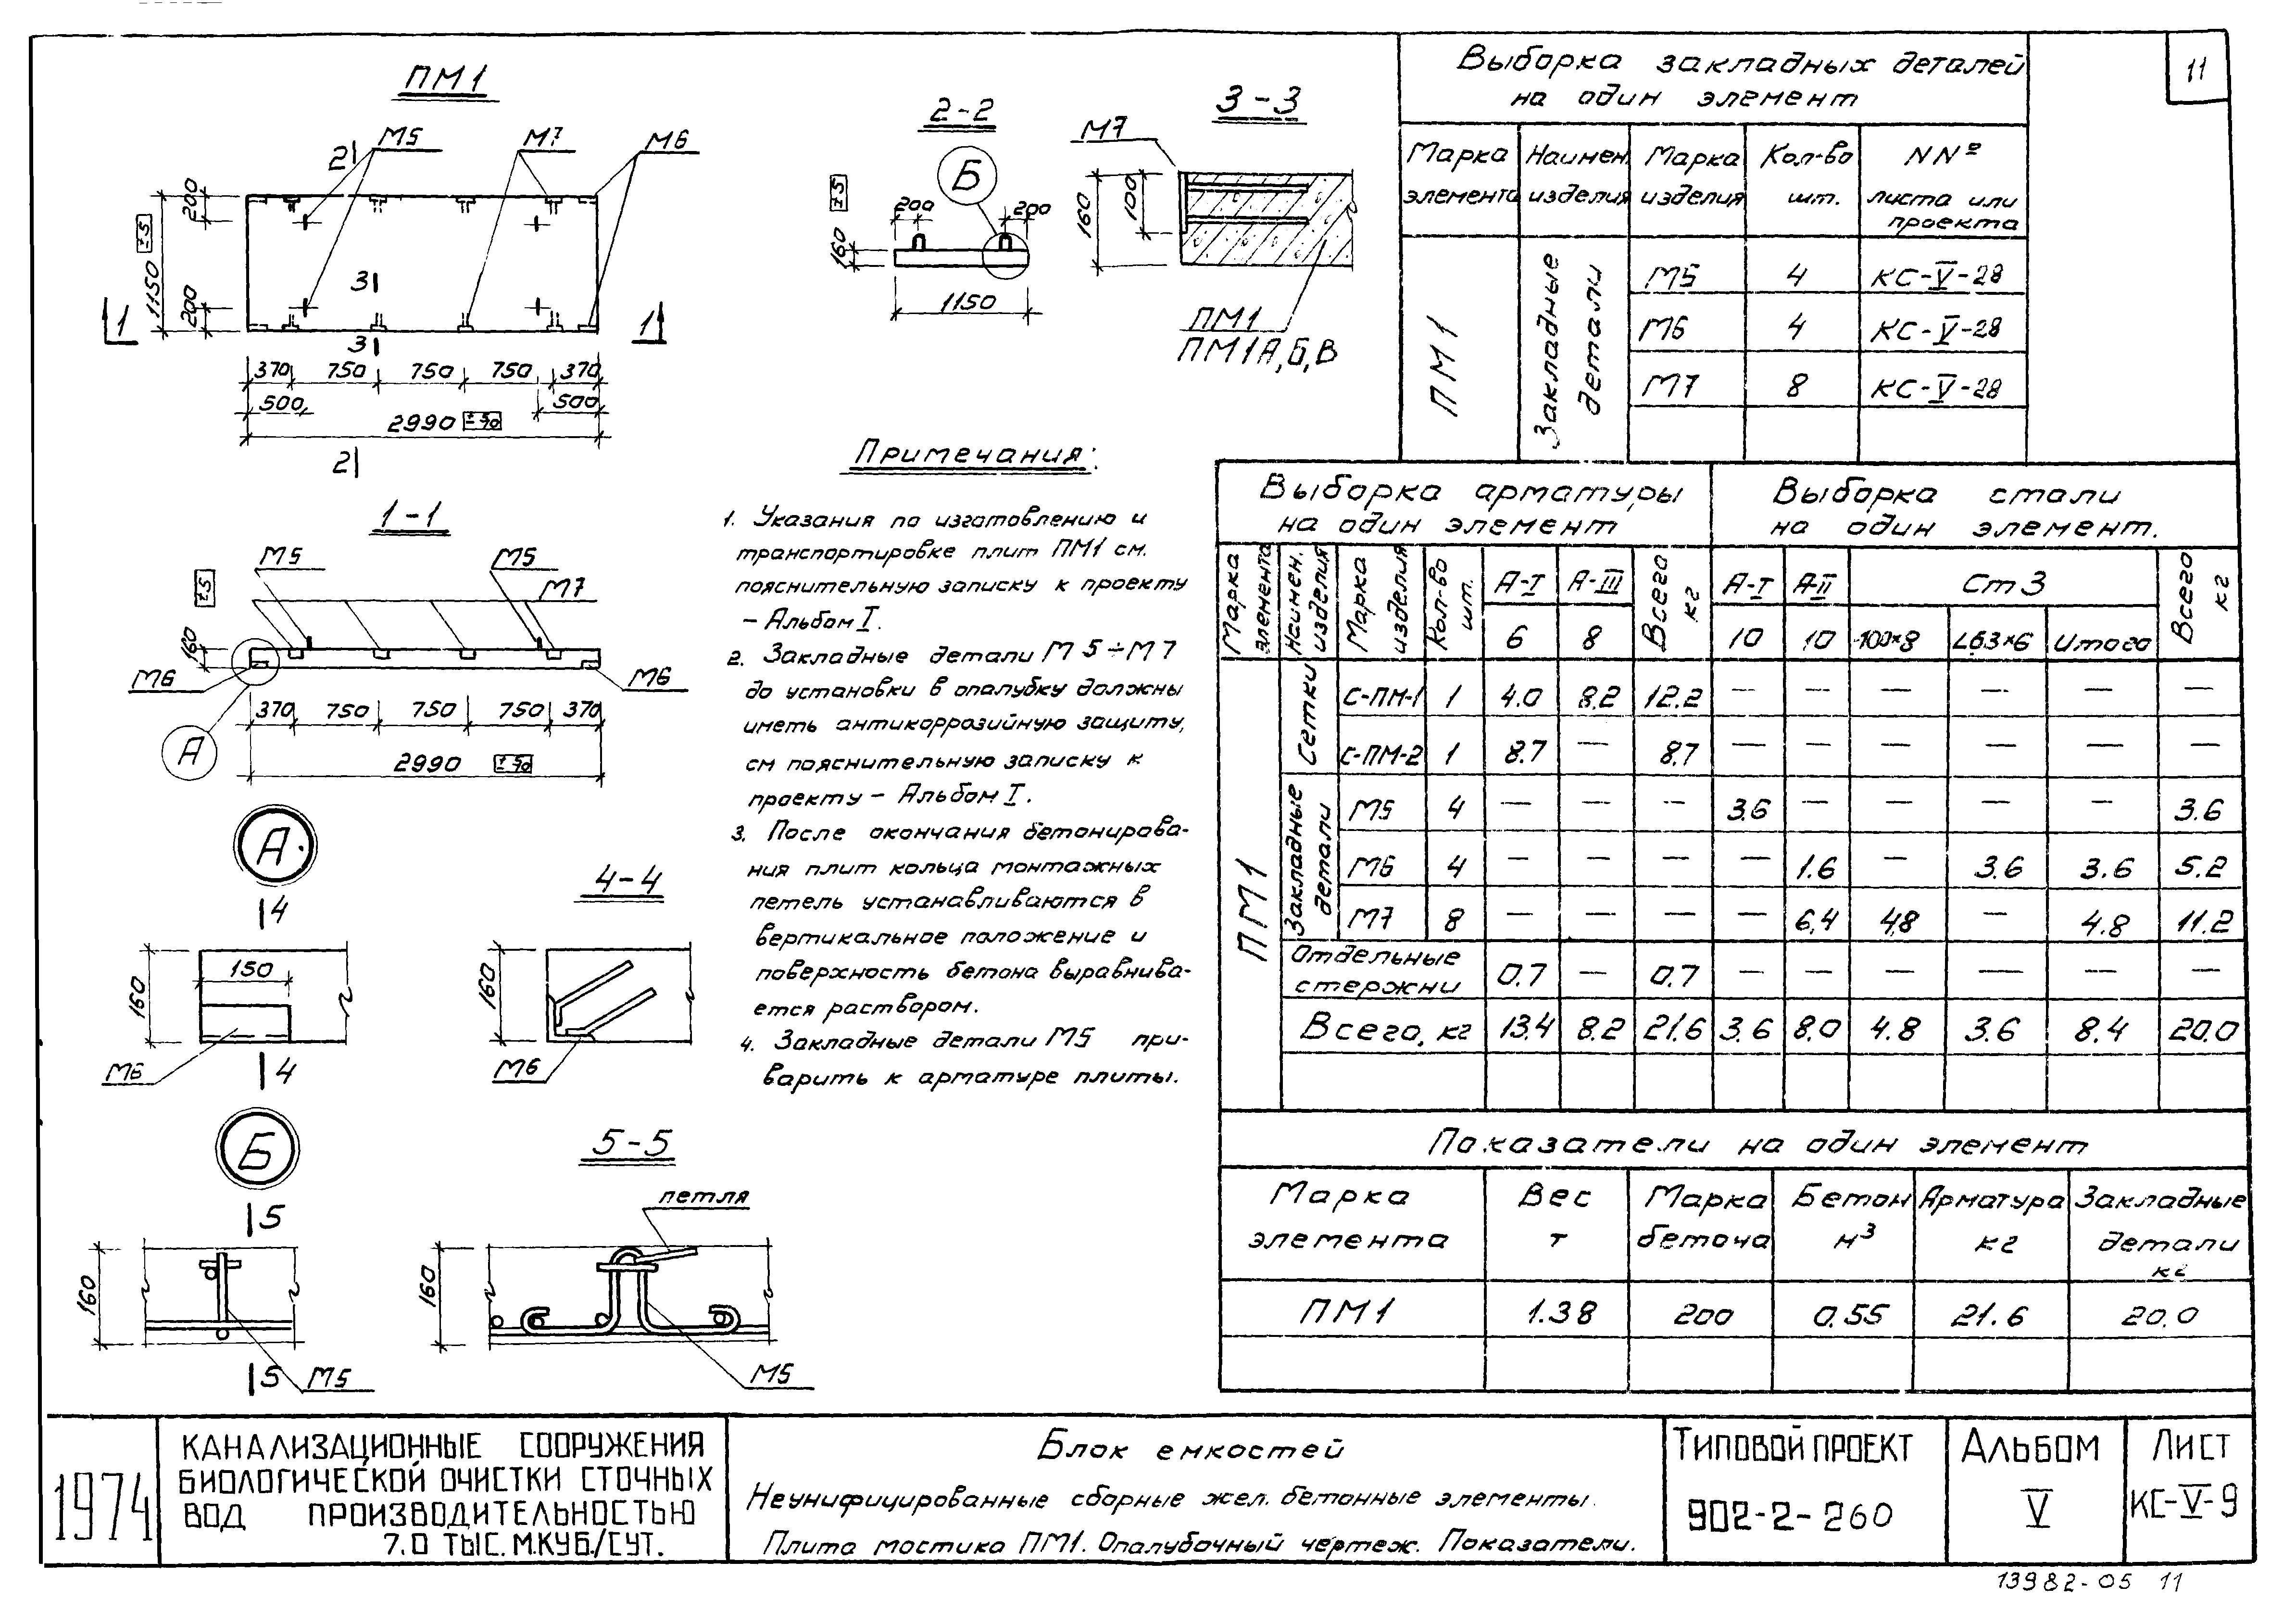 11
ПМ1
М5
М7
М6
2
200
1150 ±5
200
3
1
1
3
370 750 750 750 370
500 500
2990
2
1-1
М5 М5
М7
±5
160
М6 М6
370 750 750 750 370
А
2990
А
4
150
160
М6
4
4-4
160
М6
Б
5
160
5 М5
5-5
петля
160
М5
2-2
Б
±5
200 200
160
1150
3-3
М7
160
100
ПМ1
ПМ1А,Б,В
Примечания:
1. Указания по изготовлению и
транспортировке плит ПМ1 см.
пояснительную записку к проекту
- Альбом I.
2. Закладные детали М5÷М7
до установки в опалубку должны
иметь антикоррозийную защиту,
см пояснительную записку к
проекту – Альбом I.
3. После окончания бетонирова-
ния плит кольца монтажных
петель устанавливаются в
вертикальное положение и
поверхность бетона выравнива-
ется раствором.
4. Закладные детали М5 при-
варить к арматуре плиты.
Выборка закладных деталей
на один элемент
Марка элемента Наимен. изделия Марка изделия Кол-во шт. NNº листа или проекта
ПМ1 Закладные детали М5 4 КС-V-28
М6 4 КС-V-28
М7 8 КС-V-28
Выборка арматуры
на один элемент
Выборка стали
на один элемент.
Марка элемента Наимен. изделия Марка изделия Кол-во шт. А-I А-III Всего кг А-I А-II Ст 3 Всего кг
6 8 10 10 -100×8 L63×6 Итого
ПМ1 Сетки С-ПМ-1 1 4.0 8.2 12.2 — — — — — —
С-ПМ-2 1 8.7 — 8.7 — — — — — —
Закладные детали М5 4 — — — 3.6 — — — — 3.6
М6 4 — — — — 1.6 — 3.6 3.6 5.2
М7 8 — — — — 6,4 4,8 — 4.8 11.2
Отдельные стержни 0.7 — 0.7 — — — — — —
Всего, кг 13.4 8.2 21.6 3.6 8.0 4.8 3.6 8.4 20.0
Показатели на один элемент
Марка элемента Вес т Марка бетона Бетон м³ Арматура кг Закладные детали кг
ПМ1 1.38 200 0.55 21.6 20.0
1974
КАНАЛИЗАЦИОННЫЕ СООРУЖЕНИЯ
БИОЛОГИЧЕСКОЙ ОЧИСТКИ СТОЧНЫХ
ВОД ПРОИЗВОДИТЕЛЬНОСТЬЮ
7.0 ТЫС. М.КУБ./СУТ.
Блок емкостей
Неунифицированные сборные жел. бетонные элементы.
Плита мостика ПМ1. Опалубочный чертеж. Показатели.
ТИПОВОЙ ПРОЕКТ
902-2-260
АЛЬБОМ
V
ЛИСТ
КС-V-9
13982-05 11